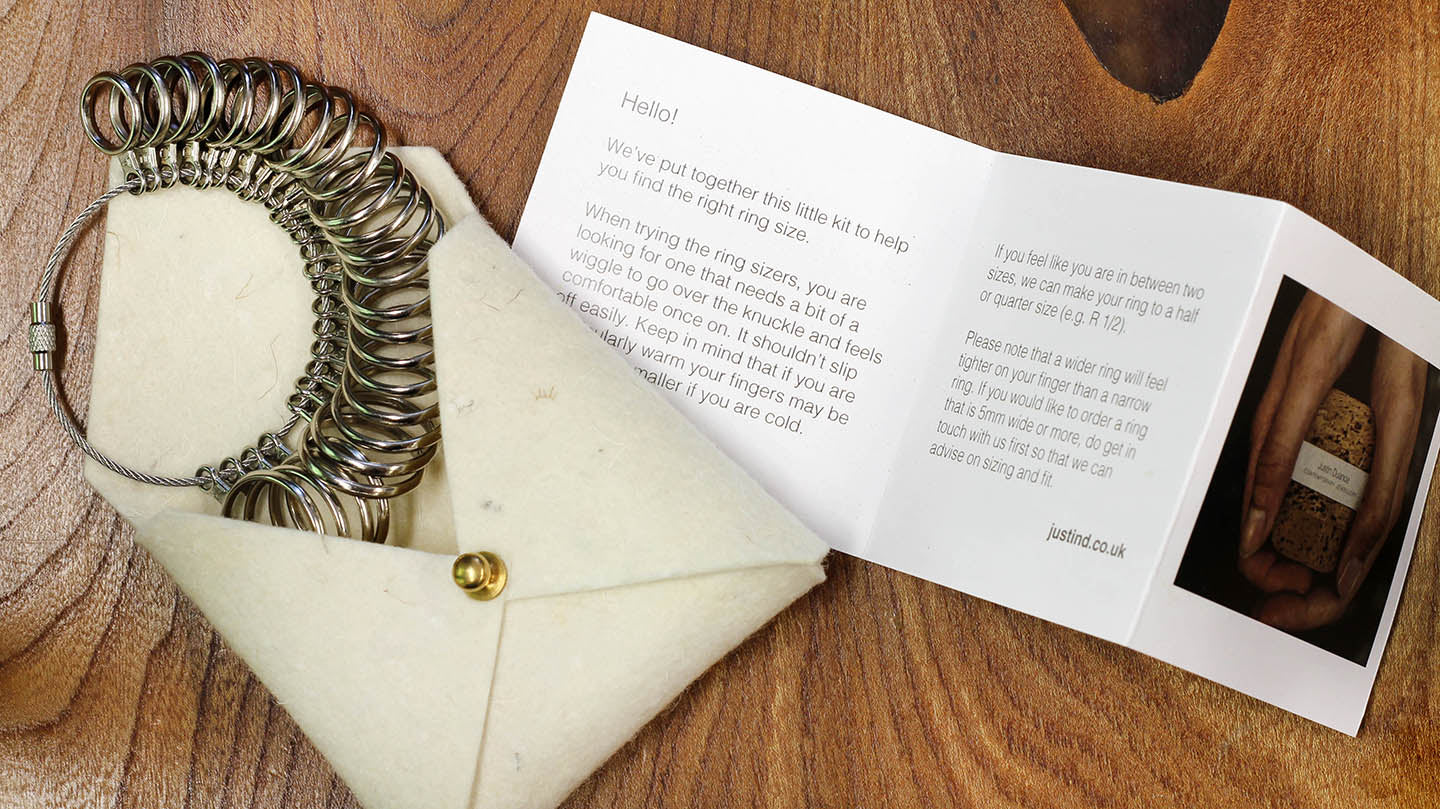 Hello!
We've put together this little kit to help
you find the right ring size.
When trying the ring sizers, you are
looking for one that needs a bit of a
wiggle to go over the knuckle and feels
comfortable once on. It shouldn't slip
off easily. Keep in mind that if you are
warm your fingers may be
if you are cold.
If you feel like you are in between two
sizes, we can make your ring to a half
or quarter size (e.g. R 1/2).
Please note that a wider ring will feel
tighter on your finger than a narrow
ring. If you would like to order a ring
that is 5mm wide or more, do get in
touch with us first so that we can
advise on sizing and fit.
justind.co.uk
Justin Duance